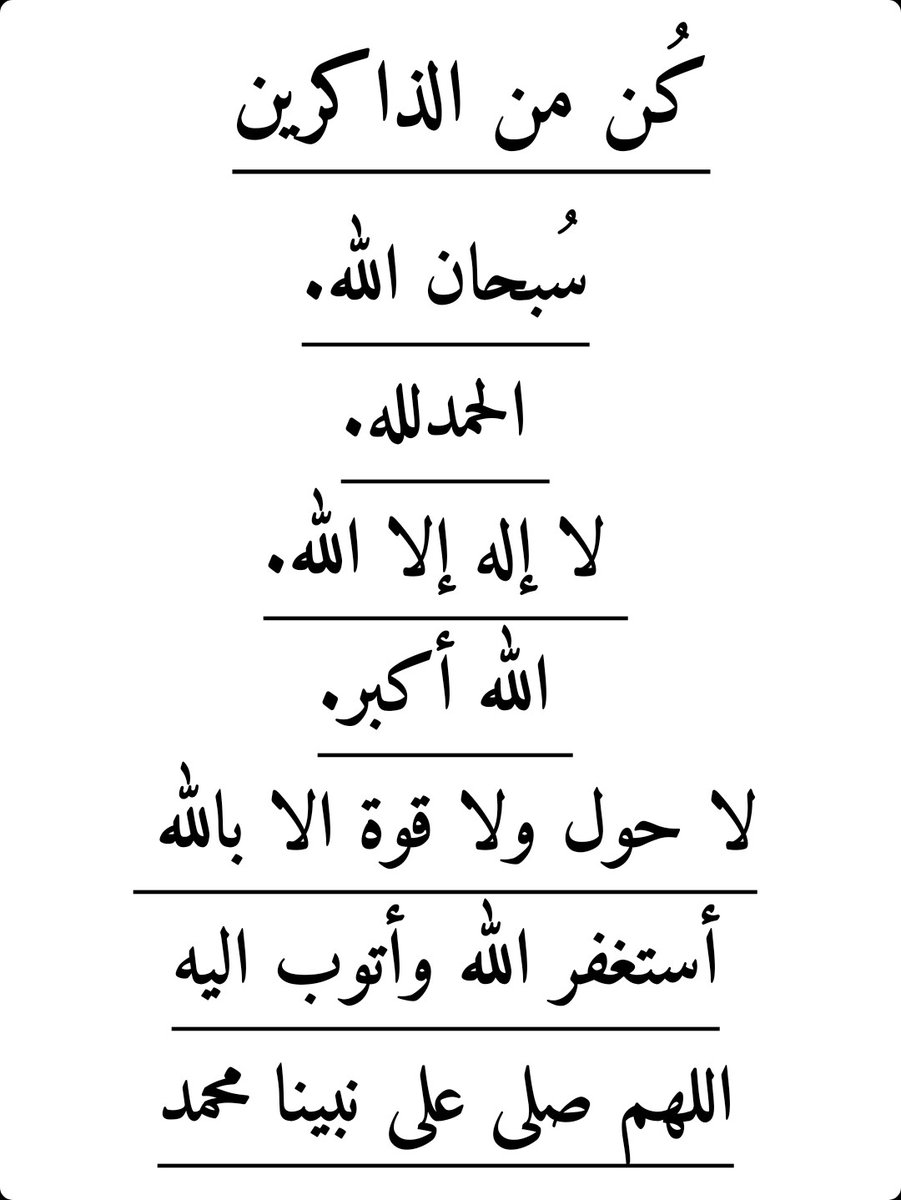 كُن من الذاكرين
سُبحان الله.
الحمدلله.
لا إله إلا الله.
الله أكبر.
لا حول ولا قوة الا بالله
أستغفر الله وأتوب اليه
اللهم صلى على نبينا محمد